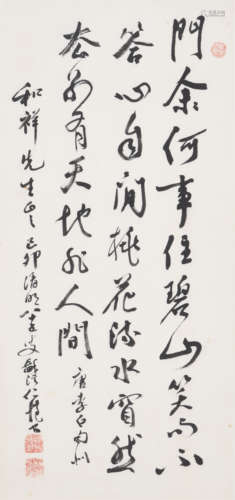 問余何事住碧山笑而不
答心自閒桃花流水窅然
去別有天地非人間 唐李白
和祥先生正之己卯清明